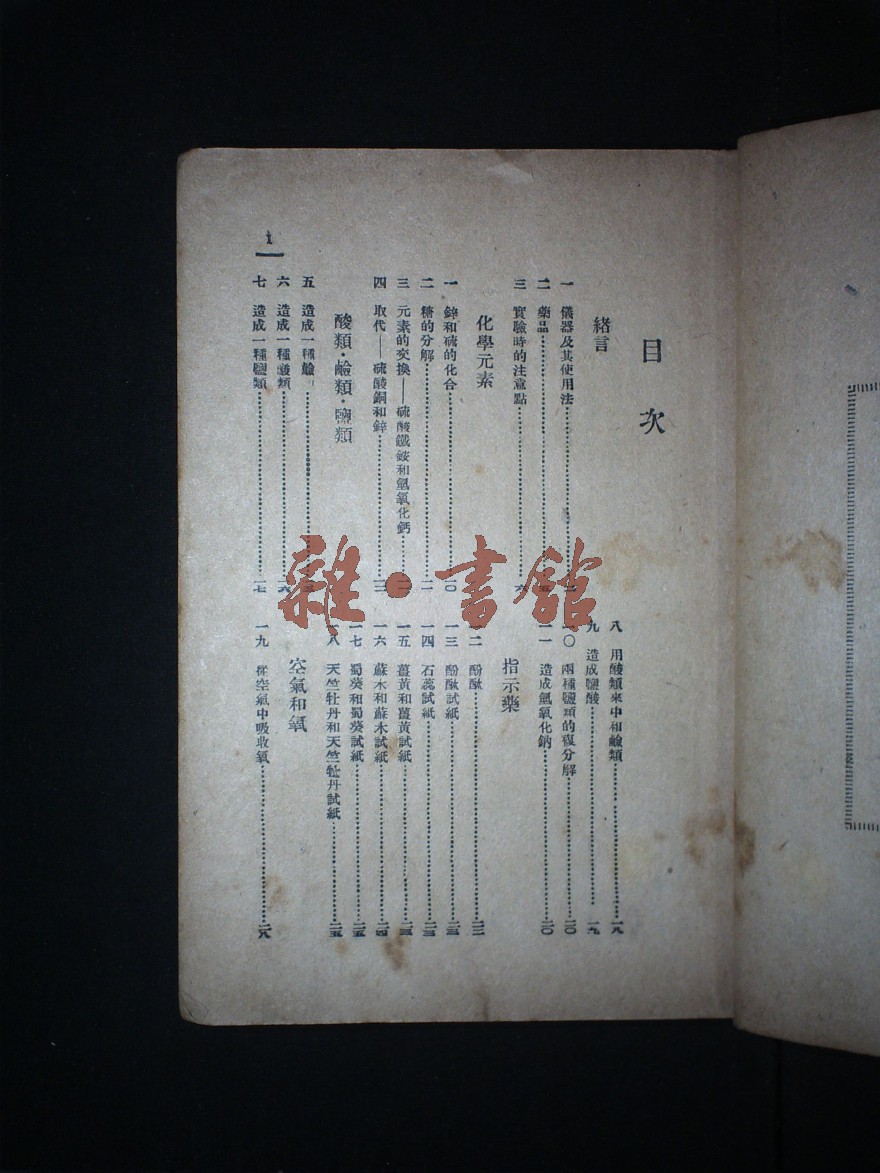 目次
緒言
一 儀器及其使用法
二 藥品
三 實驗時的注意點
化學元素
一 鋅和硫的化合 一〇
二 糖的分解 一一
三 元素的交換——硫酸鐵銨和氫氧化鈣
四 取代——硫酸銅和鋅
酸類·鹼類·鹽類
五 造成一種鹼
六 造成一種酸類 一六
七 造成一種鹽類 一七
1
八 用酸類來中和鹼類 一八
九 造成鹽酸 一九
一〇 兩種鹽類的複分解 二〇
一一 造成氫氧化鈉 二〇
指示藥
一二 酚酞 二二
一三 酚酞試紙 二三
一四 石蕊試紙 二三
一五 薑黃和薑黃試紙 二三
一六 蘇木和蘇木試紙 二四
一七 蜀葵和蜀葵試紙 二五
一八 天竺牡丹和天竺牡丹試紙 二五
空氣和氧
一九 從空氣中吸收氧 二八
雜·書館